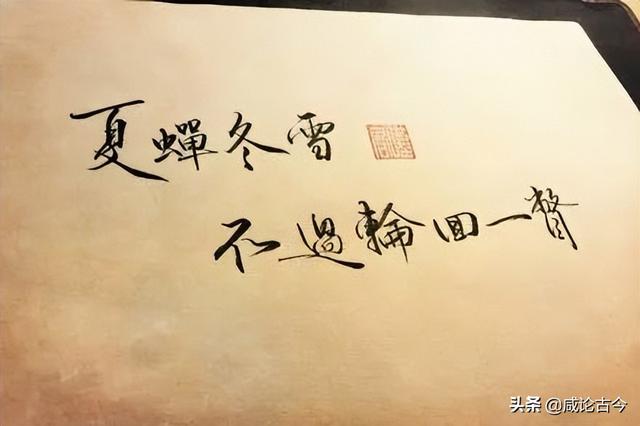 夏蟬冬雪
不過輪回一瞥
头条 @咸论古今